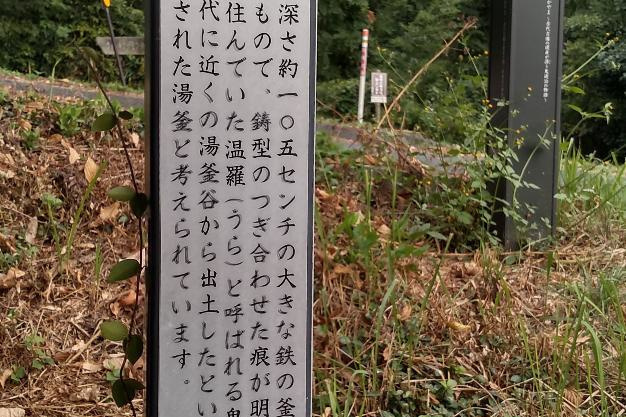 深さ約一〇五センチの大きな鉄の釜
もので、鋳型のつぎ合わせた痕が明
住んでいた温羅(うら)と呼ばれる鬼
代に近くの湯釜谷から出土したとい
された湯釜と考えられています。